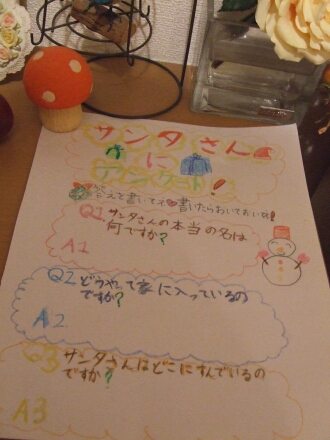 サンタさん
に
アンケート!
答えを書いてネ♥書いたらおいておいてネ!
Q1 サンタさんの本当の名は
何ですか?
A1
Q2 どうやって家に入っているの
ですか?
A2
Q3 サンタさんはどこにすんでいるの
ですか?
A3